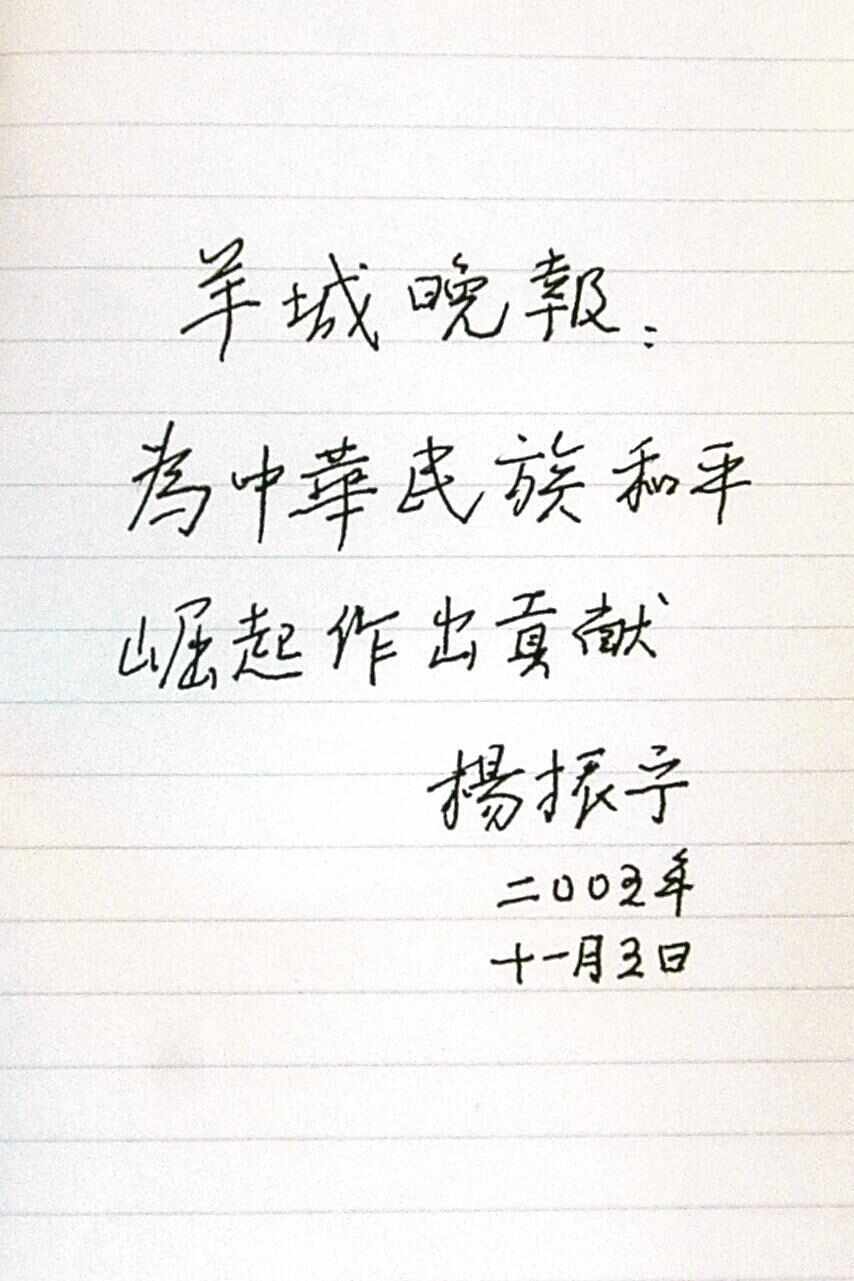 羊城晚報：
為中華民族和平
崛起作出貢献
楊振宁
二00五年
十一月五日